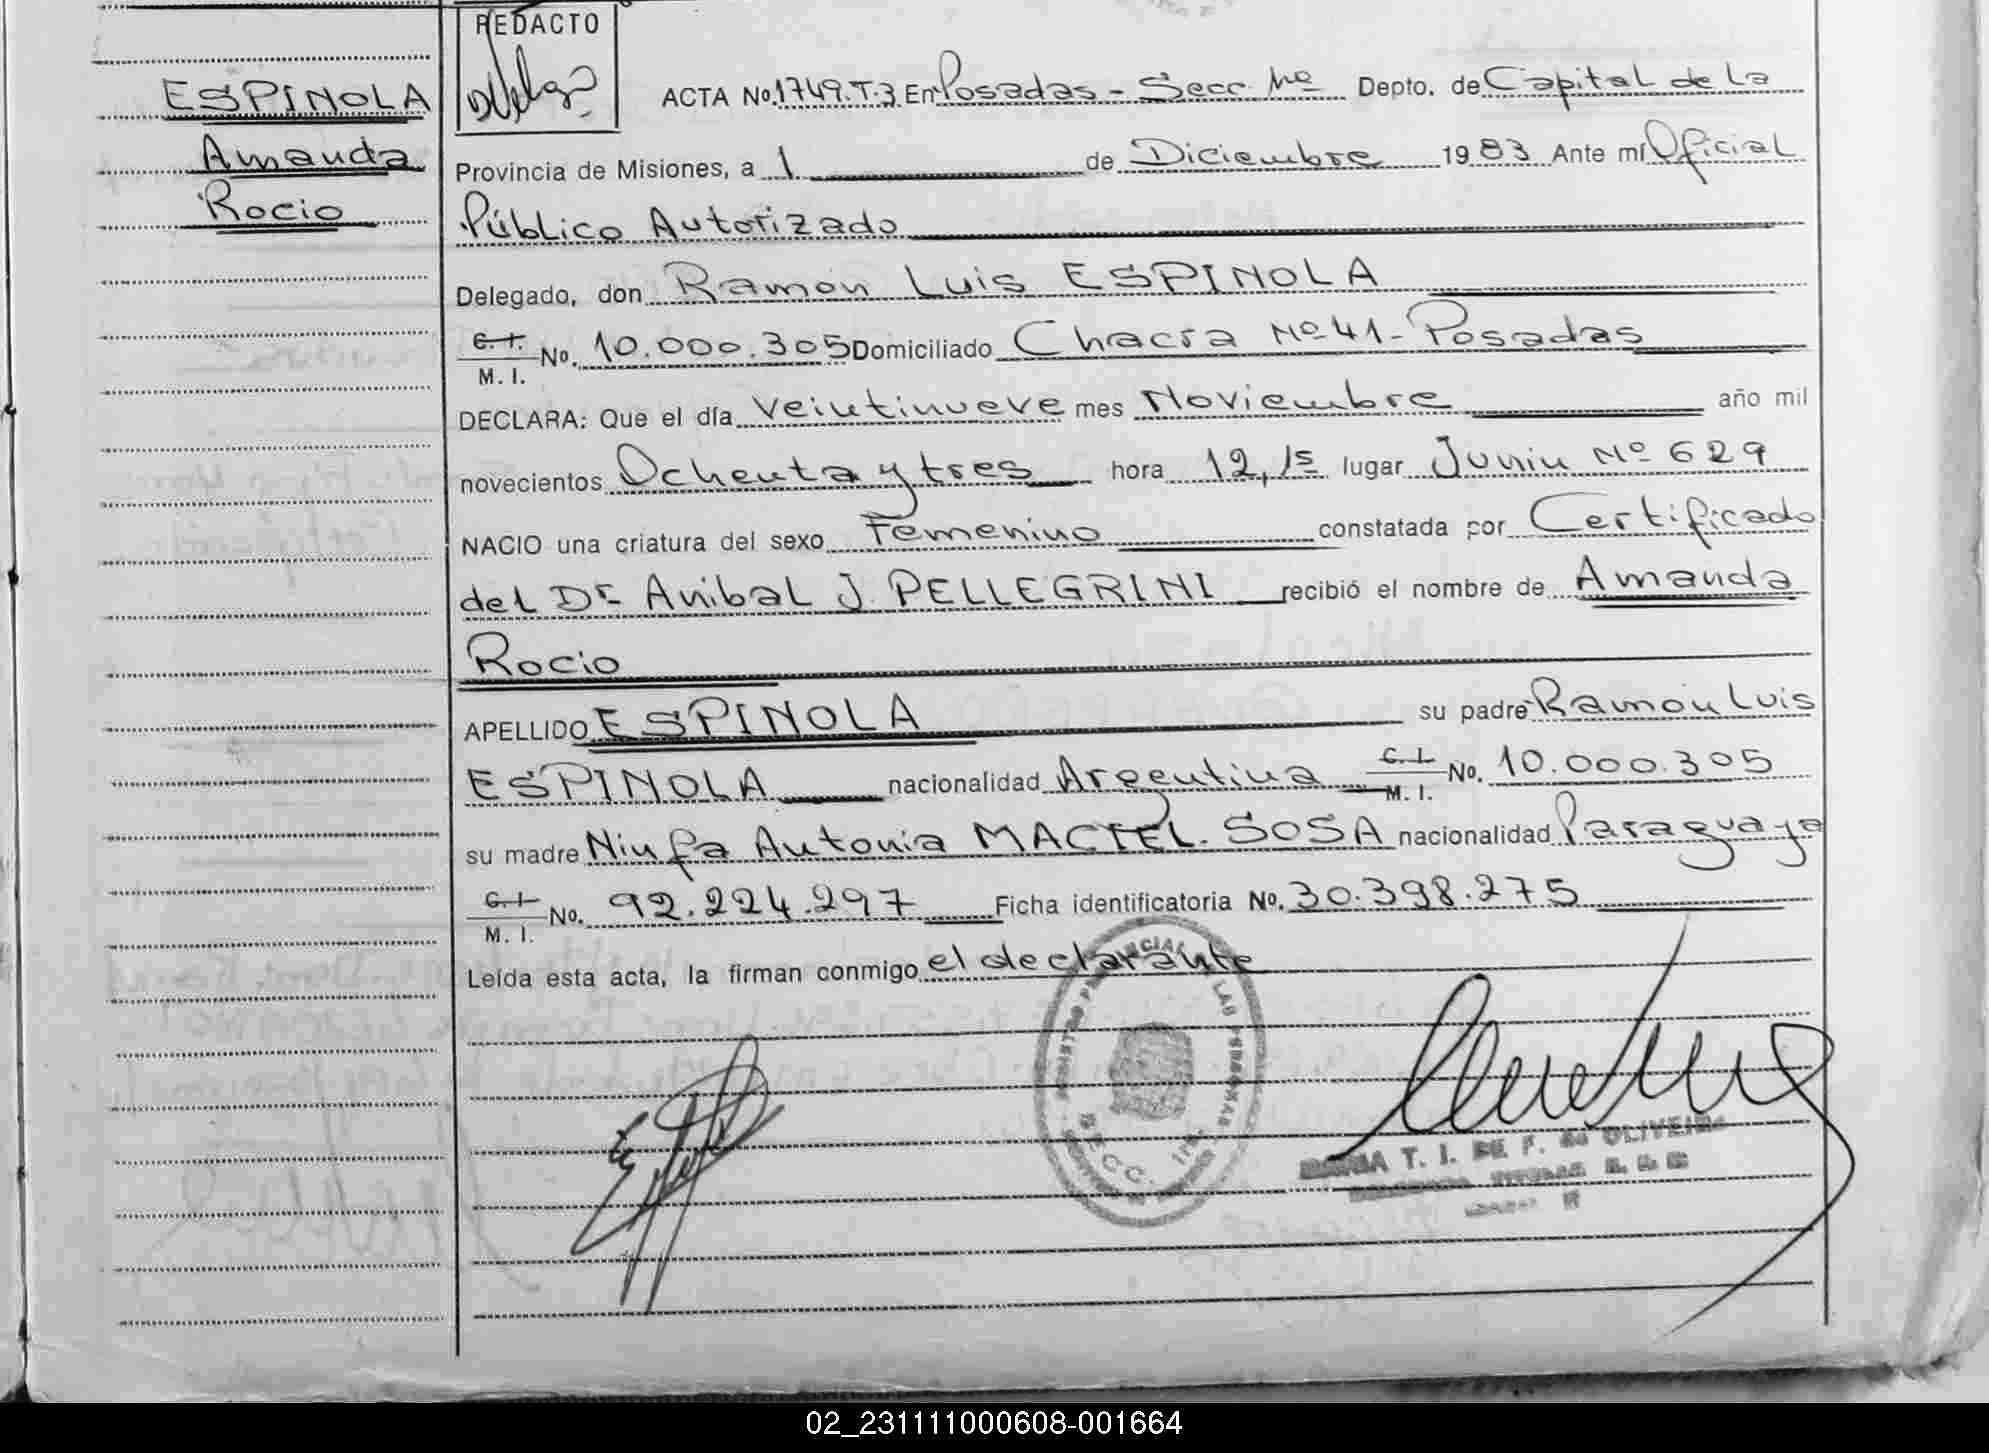 REDACTO
ESPINOLA
Amanda
Rocio
ACTA No. 1749.T.3 En Posadas - Secc. Mº Depto. de Capital de La
Provincia de Misiones, a 1 de Diciembre 1983 Ante mí Oficial
Público Autorizado
Delegado, don Ramón Luis ESPINOLA
C. I. M. I. No. 10.000.305 Domiciliado Chacra Nº 41 - Posadas
DECLARA: Que el día Veintinueve mes Noviembre año mil
novecientos Ochenta y tres hora 12,15 lugar Junin Nº 629
NACIO una criatura del sexo Femenino constatada por Certificado
del Dr Anibal J. PELLEGRINI recibió el nombre de Amanda
Rocio
APELLIDO ESPINOLA su padre Ramón Luis
ESPINOLA nacionalidad Argentina C. I. M. I. No. 10.000.305
su madre Ninfa Antonia MACIEL. SOSA nacionalidad Paraguaya
C. I. M. I. No. 92.224.297 Ficha identificatoria No. 30.398.275
Leída esta acta, la firman conmigo el declarante
REGISTRO PROVINCIAL LAS PERSONAS
SECC.
MARIA T. I. DE F. de OLIVEIRA
02_231111000608-001664